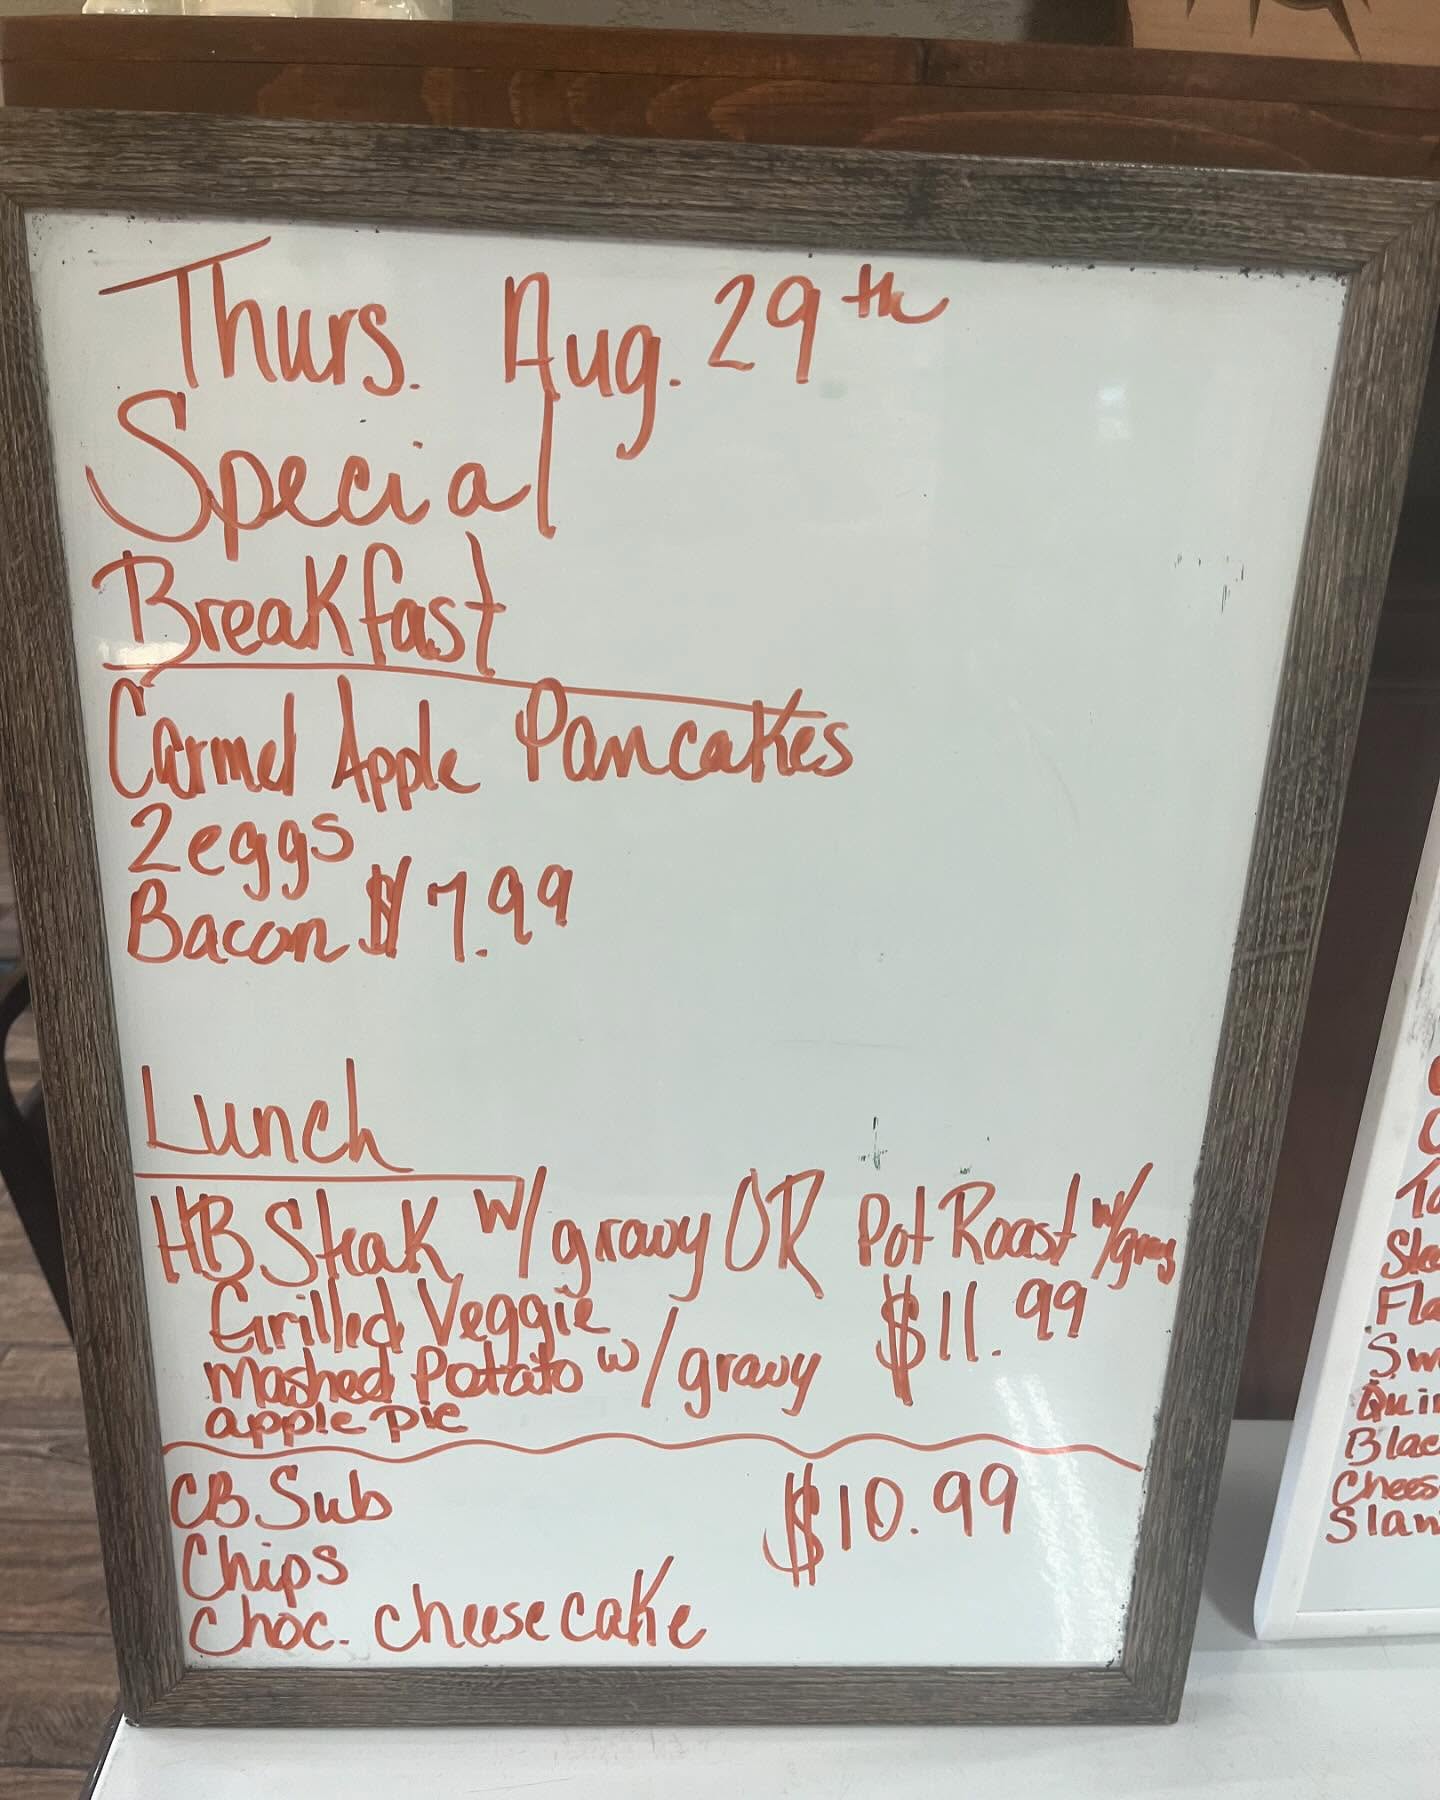 Thurs. Aug. 29th
Special
Breakfast
Carmel Apple Pancakes
2 eggs
Bacon $7.99
Lunch
HB Steak w/ gravy OR Pot Roast w/gravy
Grilled Veggie $11.99
Mashed Potato w/ gravy
apple pie
CB Sub $10.99
Chips
Choc. cheesecake
Sw
Quin
Blac
Chees
Slaw